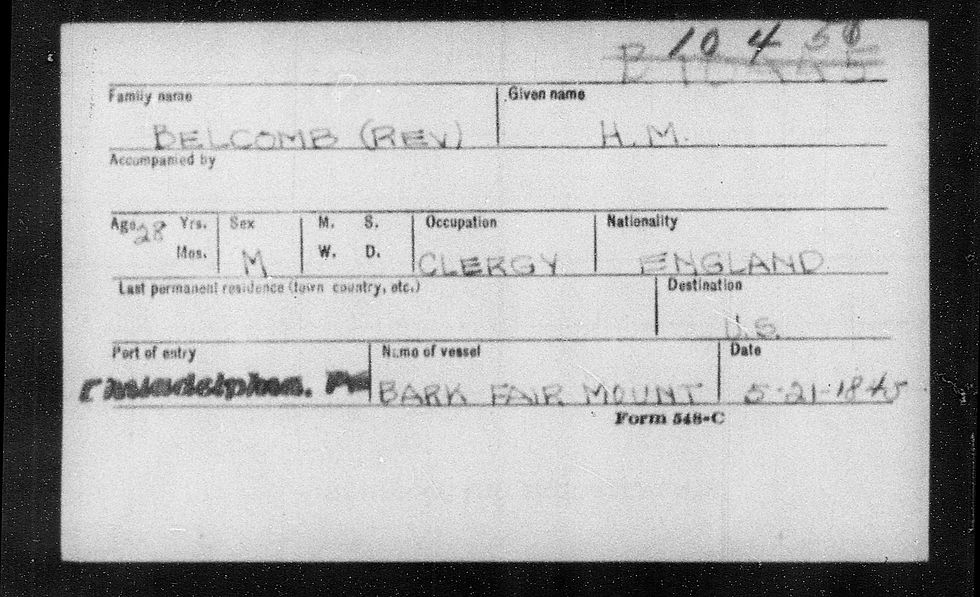 10 4 50
Family name Given name
BELCOMB (REV) H. M.
Accompanied by
Age 28 Yrs. Sex M. S. Occupation Nationality
Mos. M W. D. CLERGY ENGLAND
Last permanent residence (town country, etc.) Destination
U.S.
Port of entry Name of vessel Date
Philadelphia. Pa BARK FAIR MOUNT 5-21-1845
Form 548-C